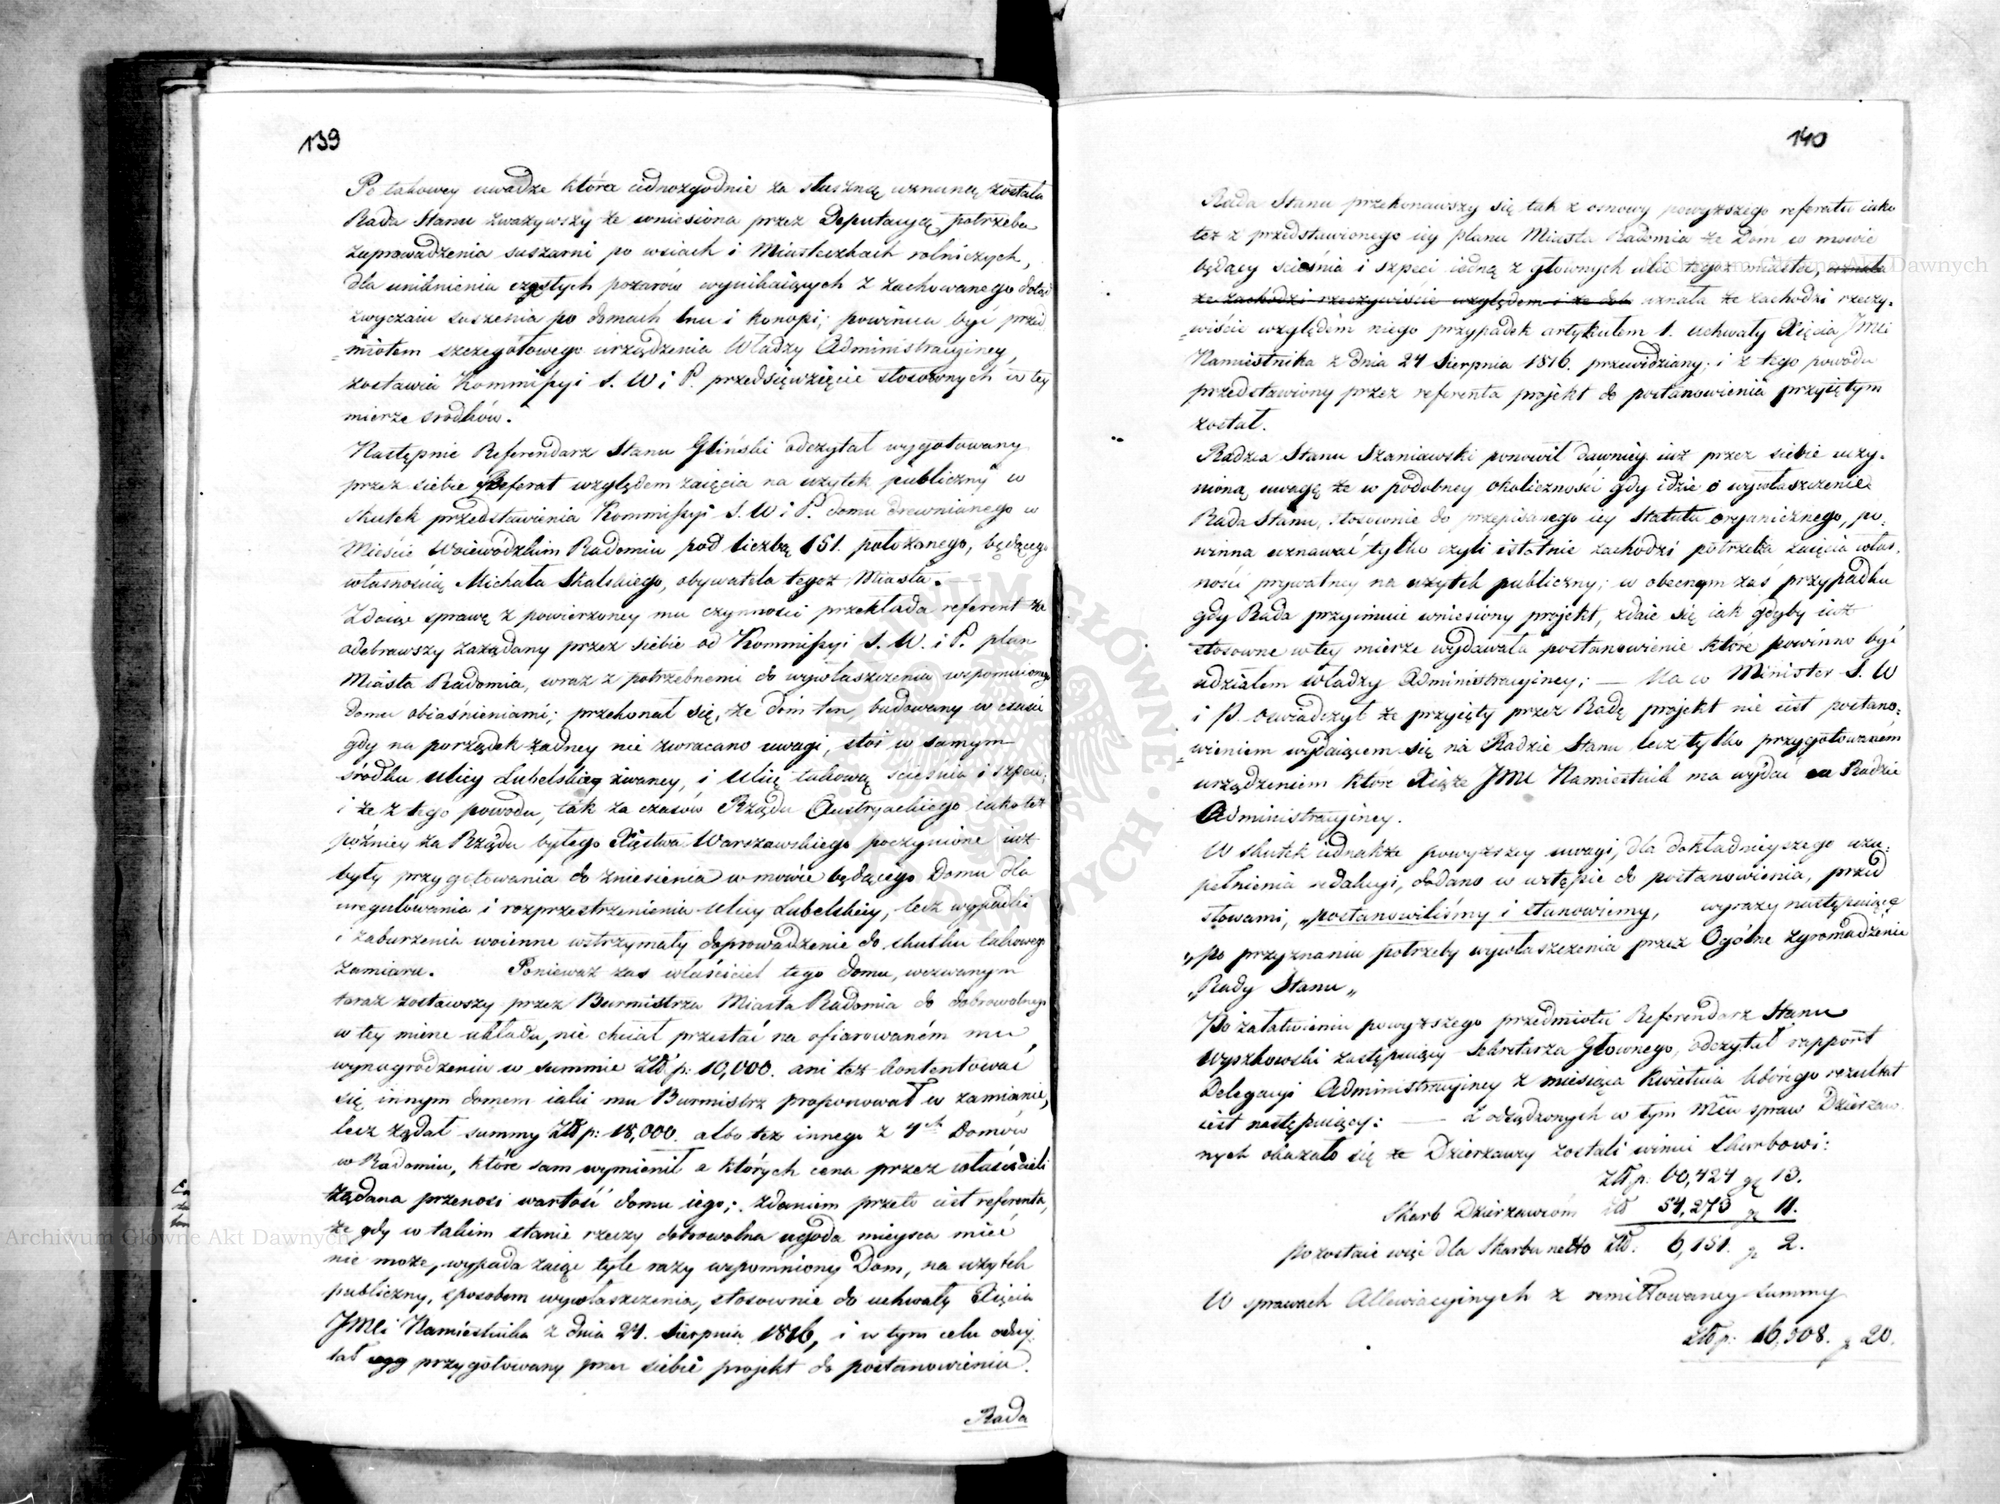 139
Po takowey uwadze która iednozgodnie za słuszną uznaną została
Rada Stanu zważywszy że wniesiona przez Deputacyą potrzeba
zaprowadzenia suszarni po wsiach i Miasteczkach rolniczych,
dla uniknienia częstych pożarów wynikaiących z zachowanego dotąd
zwyczaiu suszenia po domach lnu i konopi; powinna być przed
=miotem szczegółowego urządzenia Władzy Administracyiney,
zostawia Kommissyi S. W i P. przedsięwzięcie stosownych w tey
mierze srodków.
Następnie Referendarz Stanu Gliński odczytał wygotowany
przez siebie Referat względem zaięcia na użytek publiczny w
skutek przedstawienia Kommissyi S. W i P. domu drewnianego w
Mieście Woiewódzkim Radomiu pod liczbą 151. położonego, będącego
własnością Michała Skalskiego, obywatela tegoż Miasta.
Zdaiąc sprawę z powierzoney mu czynności przekłada referent że
odebrawszy zażądany przez siebie od Kommissyi S. W. i P. plan
Miasta Radomia, wraz z potrzebnemi do wywłaszczenia wspomnionego
domu obiaśnieniami; przekonał się, że dom ten, budowany w czasie
gdy na porządek żadney nie zwracano uwagi, stoi w samym
środku ulicy Lubelskiey zwaney, i ulicę takową scieśnia i szpeci;
i że z tego powodu, tak za czasów Rządu Austryackiego iako też
późniey za Rządu byłego Xięstwa Warszawskiego poczynione iuż
były przygotowania do zniesienia w mowie będącego Domu dla
uregulowania i rozprzestrzenienia ulicy Lubelskiey, lecz wypadki
i zaburzenia woienne wstrzymały doprowadzenie do skutku takowego
zamiaru. Ponieważ zaś właściciel tego domu, wezwanym
teraz zostawszy przez Burmistrza Miasta Radomia do dobrowolnego
w tey mierze układu, nie chciał przestać na ofiarowaném mu
wynagrodzeniu w summie Złł p: 10,000. ani też kontentować
się innym domem iaki mu Burmistrz proponował w zamianie,
lecz żądał summy Złł p: 18,000. albo też innego z 4ch Domów
w Radomiu, które sam wymienił a których cena przez właścicieli
żądana przenosi wartość domu iego; zdaniem przeto iest referenta,
że gdy w takim stanie rzeczy dobrowolna ugoda mieysca mieć
nie może, wypada zaiąć tyle razy wspomniony Dom, na użytek
publiczny, sposobem wywłaszczenia, stosownie do uchwały Xięcia
JMci Namiestnika z dnia 24. Sierpnia 1816, i w tym celu odczy
tał przygotowany przez siebie projekt do postanowienia.
Rada
140
Rada Stanu przekonawszy się tak z osnowy powyższego referatu iako
też z przedstawionego iey planu Miasta Radomia że Dom w mowie
będący scieśnia i szpeci iedną z głownych ulic tegoż miasta, uznała
że zachodzi rzeczywiście względem i że dob uznała że zachodzi rzeczy=
=wiście względem niego przypadek artykułem 1. uchwały Xięcia JMci
Namiestnika z dnia 24 Sierpnia 1816. przewidziany; i z tego powodu
przedstawiony przez referenta projekt do postanowienia przyiętym
został.
Radzca Stanu Szaniawski ponowił dawniey iuż przez siebie uczy=
nioną uwagę że w podobney okoliczności gdy idzie o wywłaszczenie
Rada Stanu, stosownie do przepisanego iey Statutu organicznego, po=
winna uznawać tylko czyli istotnie zachodzi potrzeba zaięcia włas=
ności prywatney na użytek publiczny; w obecnym zaś przypadku
gdy Rada przyimuie wniesiony projekt, zdaie się iak gdyby iuż
stosowne w tey mierze wydawała postanowienie które powinno być
udziałem władzy Administracyiney; — Na co Minister S. W
i P. oswiadczył że przyięty przez Radę projekt nie iest postano=
=wieniem wydaiącem się na Radzie Stanu lecz tylko przygotowanem
urządzeniem które Xiąże JMć Namiestnik ma wydać na Radzie
Administracyiney.
W skutek iednakże powyższey uwagi, dla dokładnieyszego uzu=
pełnienia redakcyi, dodano w wstępie do postanowienia, przed
słowami, „postanowiliśmy i stanowiemy, wyrazy następuiące
„po przyznaniu potrzeby wywłaszczenia przez Ogólne Zgromadzenie
„Rady Stanu„
Po załatwieniu powyższego przedmiotu Referendarz Stanu
Wyszkowski zastępuiący Sekretarza Głownego, odczytał rapport
Delegacyi Administracyiney z miesiąca Kwietnia którego rezultat
iest następuiący: — Z osądzonych w tym Mcu spraw Dzierżaw
nych okazało się że Dzierżawcy zostali winni Skarbowi:
Złł p. 60,424 g 13.
Skarb Dzierżawcom Złł 54,273 g 11.
pozostaie więc dla Skarbu netto Złł: 6,151. g 2.
W sprawach Allewiacyinych z remittowaney summy
Złł p: 16,308. g 20.